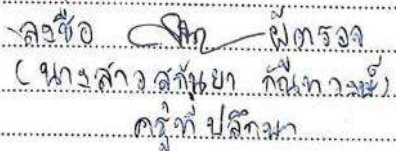 ลงชื่อ ผู้ตรวจ
(นางสาวสุกันยา
ครูที่ปรึกษา